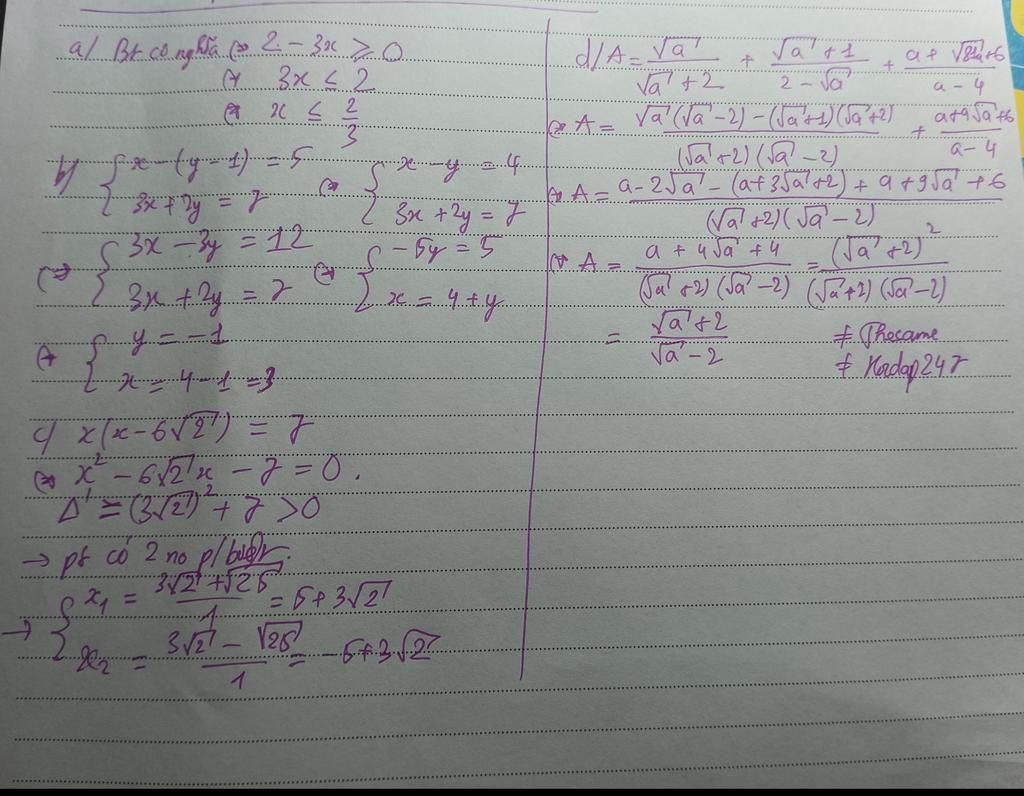 a/ Bt có nghĩa (=> 2 - 3x ≥ 0
(=> 3x ≤ 2
(=> x ≤ 2/3
b) { x - (y - 1) = 5 (=> { x - y = 4
{ 3x + 2y = 7 { 3x + 2y = 7
(=> { 3x - 3y = 12 (=> { -5y = 5
{ 3x + 2y = 7 { x = 4 + y
(=> { y = -1
{ x = 4 - 1 = 3
c) x(x - 6√2) = 7
(=> x² - 6√2x - 7 = 0.
Δ' = (3√2)² + 7 > 0
→ pt có 2 no p/biệt.
→ { x₁ = (3√2 + √25)/1 = 5 + 3√2
{ x₂ = (3√2 - √25)/1 = -5 + 3√2
d/ A = √a/(√a + 2) + (√a + 1)/(2 - √a) + (a + √81a + 6)/(a - 4)
(=> A = (√a(√a - 2) - (√a + 1)(√a + 2))/((√a + 2)(√a - 2)) + (a + 9√a + 6)/(a - 4)
(=> A = (a - 2√a - (a + 3√a + 2) + a + 9√a + 6)/((√a + 2)(√a - 2))
(=> A = (a + 4√a + 4)/((√a + 2)(√a - 2)) = (√a + 2)²/((√a + 2)(√a - 2))
= (√a + 2)/(√a - 2)
# Thesame
# Hoidap247